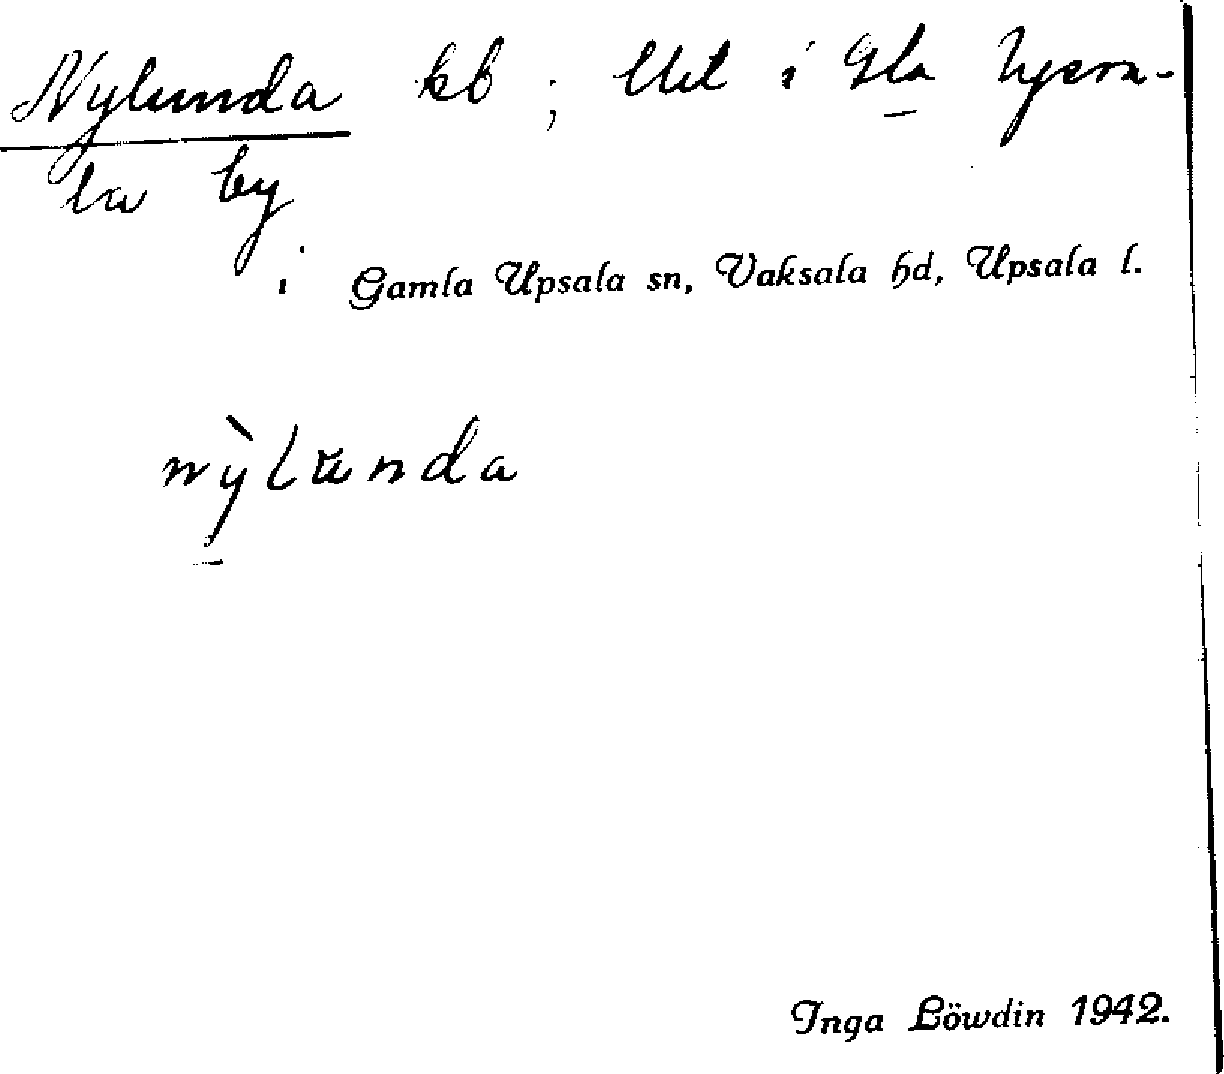 Nylunda kb ; i Gla Upsa-
la by
i Gamla Upsala sn, Vaksala hd, Upsala l.
nỳlunda
Inga Löwdin 1942.